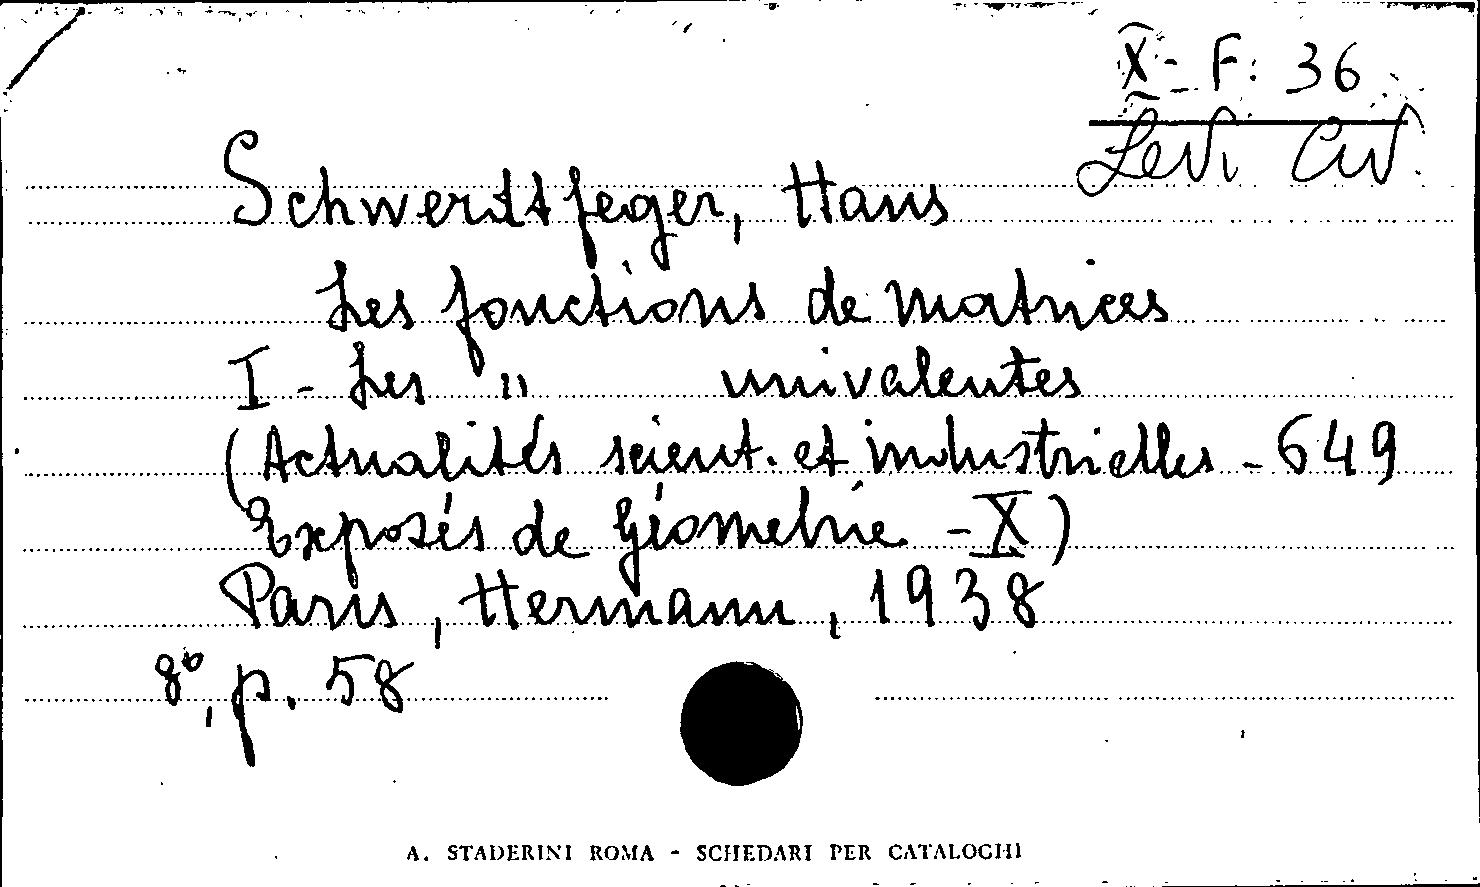 X - F: 36
Levi Civ.
Schwerdtfeger, Hans
Les fonctions de matrices
I - Les " univalentes
(Actualités scient. et industrielles - 649
Exposés de Géometrie - X)
Paris, Hermann, 1938
8°, p. 58
A. STADERINI ROMA - SCHEDARI PER CATALOGHI